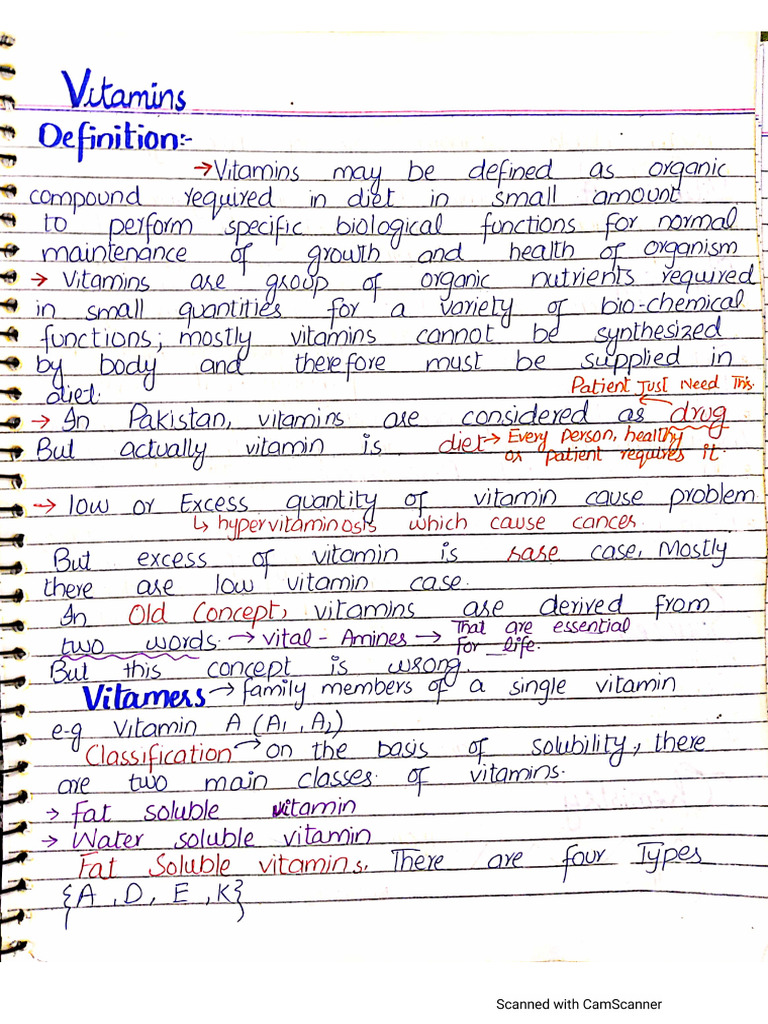 Vitamins
Definition:-
→Vitamins may be defined as organic
compound required in diet in small amount
to perform specific biological functions for normal
maintenance of growth and health of organism
→ Vitamins are group of organic nutrients required
in small quantities for a variety of bio-chemical
functions; mostly vitamins cannot be synthesized
by body and therefore must be supplied in
diet.
Patient Just Need This.
→ In Pakistan, vitamins are considered as drug
But actually vitamin is diet→ Every person, healthy
or patient requires it.
→ low or Excess quantity of vitamin cause problem
↳ hypervitaminosis which cause cancer.
But excess of vitamin is rare case, Mostly
there are low vitamin case.
In Old Concept, vitamins are derived from
two words. → vital - Amines → That are essential
for life.
But this concept is wrong.
Vitamers → family members of a single vitamin
e-g Vitamin A (A1, A2)
Classification → on the basis of solubility, there
are two main classes of vitamins.
→ Fat soluble vitamin
→ Water soluble vitamin
Fat Soluble vitamins. There are four Types
{A, D, E, K}
Scanned with CamScanner